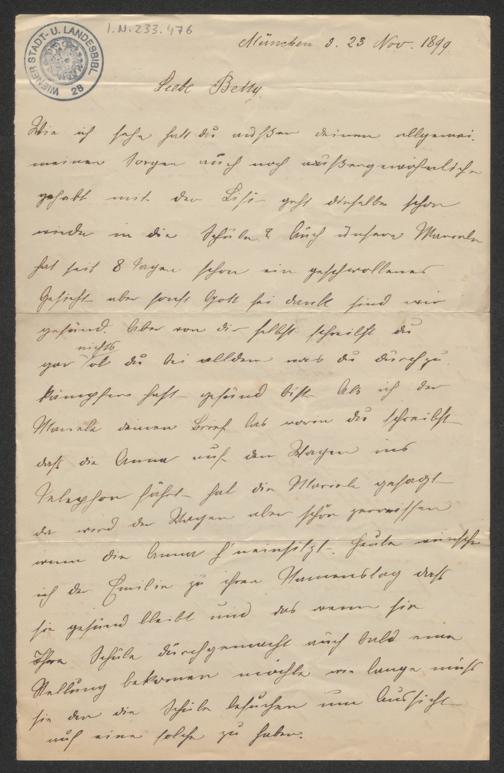 I.N. 233.476
WIENER STADT- U. LANDESBIBL. 28
München d. 23 Nov. 1899
Liebe Betty
Wie ich sehe hast du außer deinen allgemei-
meinen Sorgen auch noch außergewöhnliche
gehabt mit der Lisi geht dieselbe schon
wieder in die Schule? Auch unsere Mariele
hat seit 8 Tagen schon ein geschwollenes
Gesicht aber sonst Gott sei dank sind wir
gesund. Aber von dir selbst schreibst du
nichts
gar ob du bei alldem was du durchzu
kämpfen hast gesund bist. Als ich der
Mariele deinen Brief las worin du schreibst
daß die Anna auf den Wagen ins
Telephon fährt hat die Mariele gesagt
da wird der Wagen aber schön zerrissen
wenn die Anna h'neinsitzt. Heute wünsche
ich der Emilie zu ihren Namenstag daß
sie gesund bleibt und das wenn sie
Ihre Schule durchgemacht auch bald eine
Stellung bekommen möchte wie lange muß
sie den die Schule besuchen um Aussicht
auf eine solche zu haben.